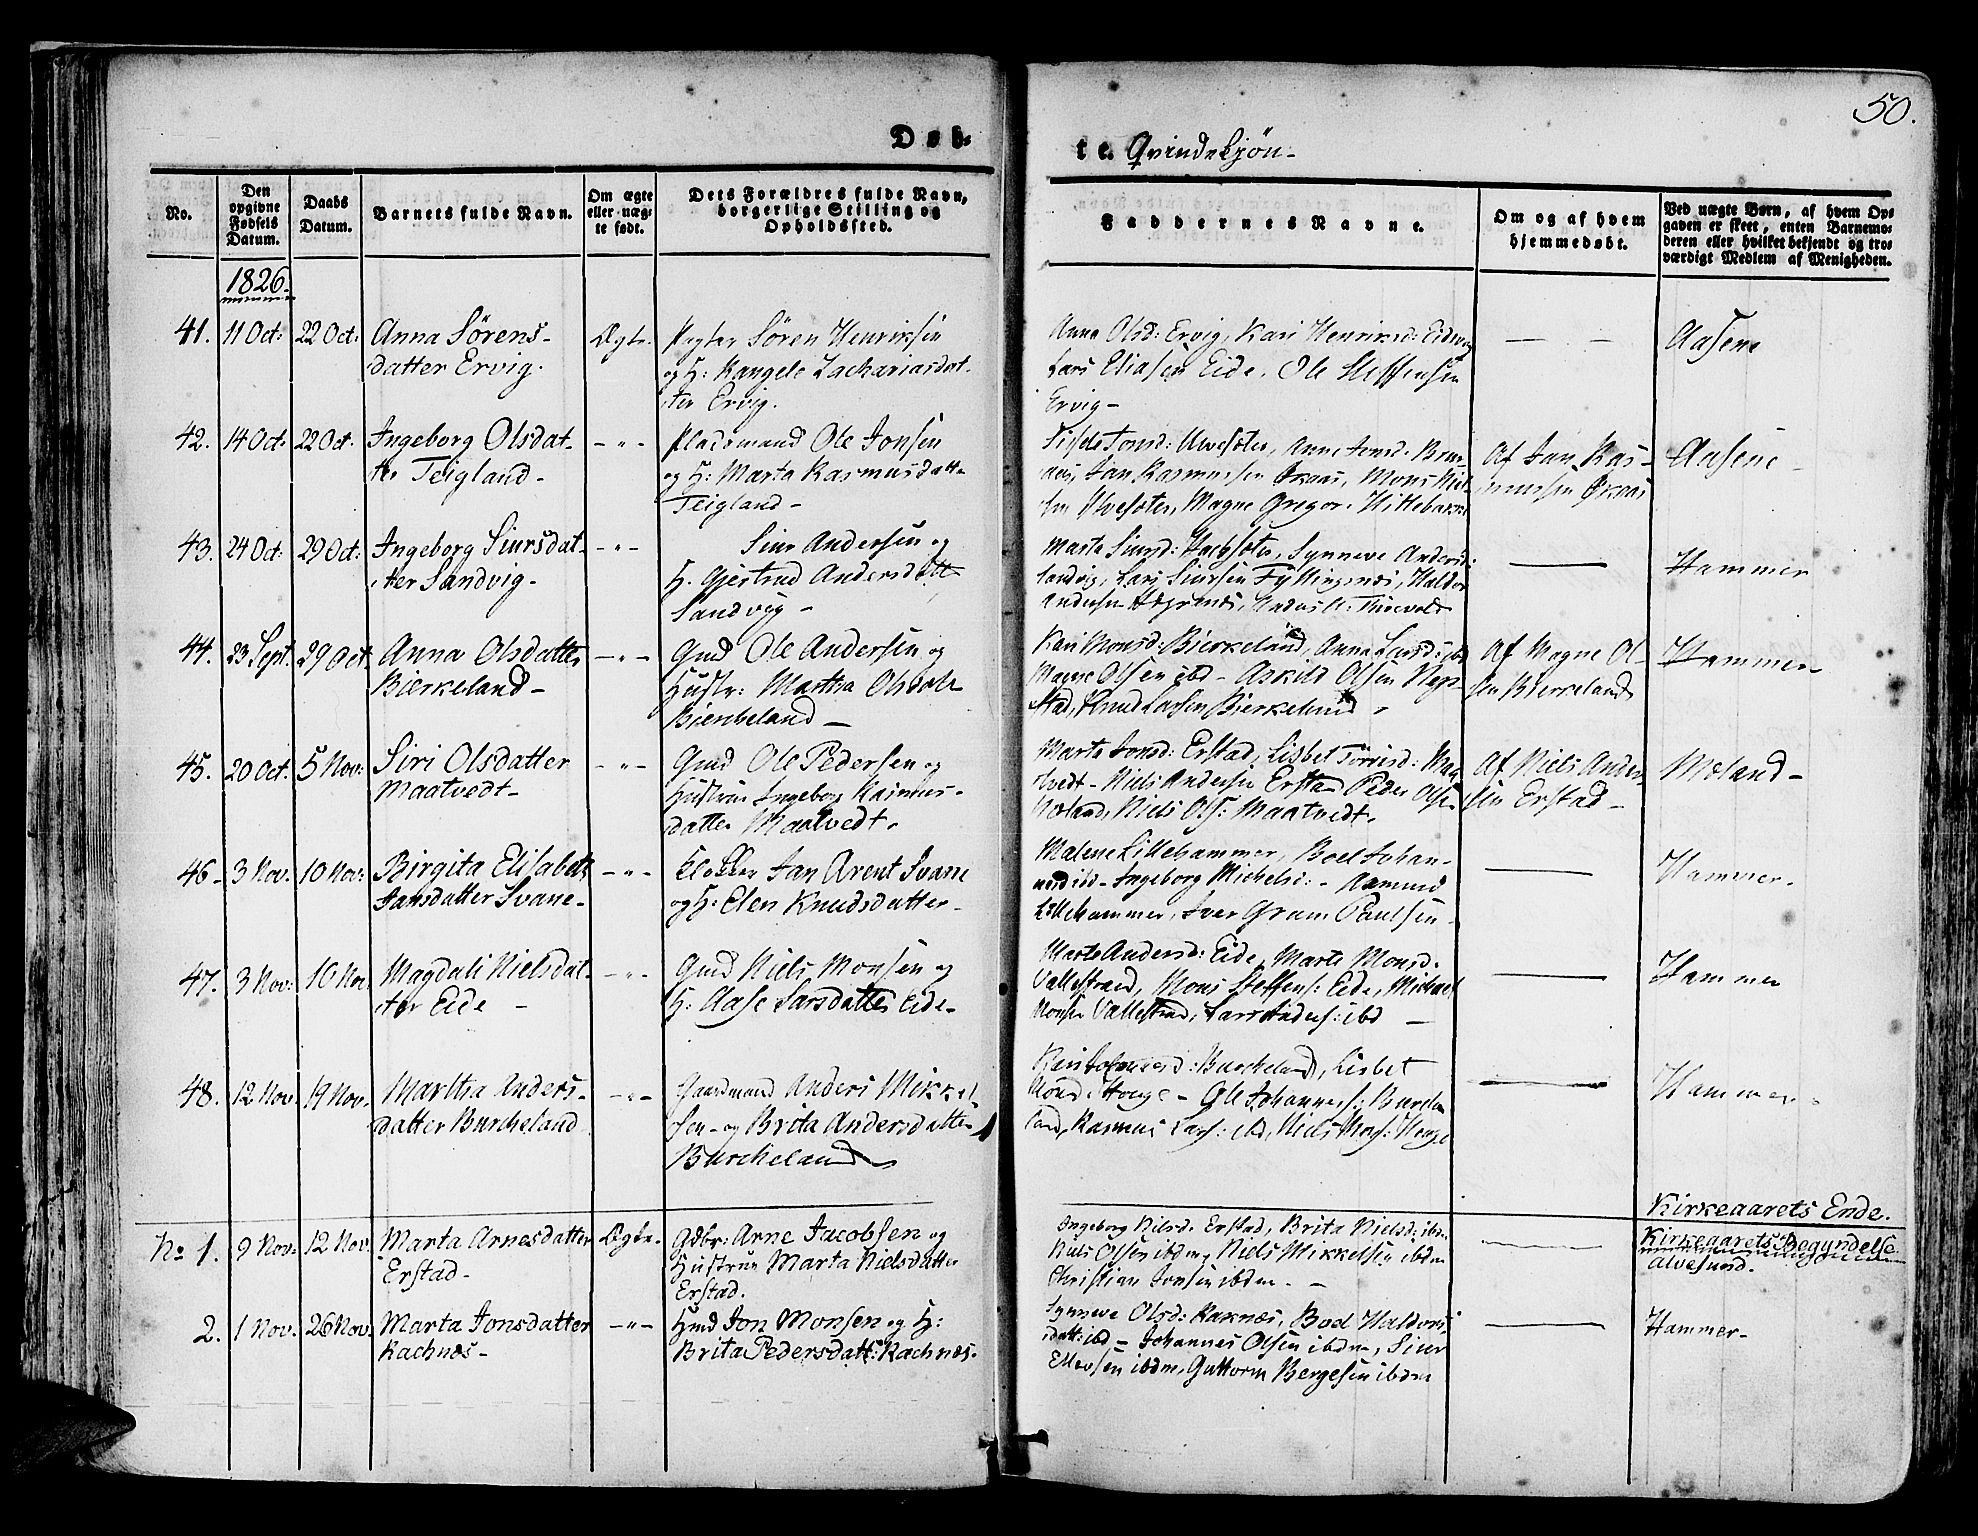 50.
Døb-
te. Qvindekjøn-
No.
Den
opgivne
Fødsels
Datum.
Daabs
Datum.
Barnets fulde Navn.
Om ægte
eller uæg-
te født.
Dets Forældres fulde Navn,
borgerlige Stilling og
Opholdssted.
Faddernes Navne.
Om og af hvem
hjemmedøbt.
Ved uægte Børn, af hvem Op-
gaven er skeet, enten Barnemo-
deren eller hvilket bekjendt og tro-
værdigt Medlem af Menigheden.
1826.
41. 11 Oct: 22 Oct: Anna Sörens-
datter Ervig.
Ægte.
Pagter Sören Henriksen
og H: Rangele Zachariasdat-
ter Ervig.
Anna Olsd: Ervig, Kari Henriksd:
Lars Eliasen Eide, Ole Steffensen
Ervig-
Aasene
42. 14 Oct: 22 Oct. Ingeborg Olsdat-
ter Teigland-
-"-
Pladsmand Ole Jonsen
og H: Marta Rasmusdatter
Teigland-
Jan Rasmussen Økaas, Mons
Magne Gregor:
Af Jan Ras-
mussen Økaas
Aasene-
43. 24 Oct: 29 Oct: Ingeborg Siursdat-
ter Sandvig-
-"-
Siur Andersen og
H. Gjertrud Andersdatt
Sandvig-
Marta Siursd: Synneve Andersd:
Sandvig, Lars Siursen Fyllingsnæs, Haldor
Andersen
Hammer
44. 23 Sept. 29 Oct. Anna Olsdatter
Bierkeland-
-"-
Gmd Ole Andersen og
Hustr: Martha
Bierkeland-
Kari Monsd: Bierkeland, Anna Larsd: ibd
Magne Olsen ibd- Askild Olsen
Knud Larsen Bierkeland.
Af Magne Ol-
sen Bierkeland
Hammer-
45. 20 Oct. 5 Nov: Siri Olsdatter
Maatvedt-
-"-
Gmd Ole Pedersen og
Hustrue Ingeborg Rasmus-
datter Maatvedt.
Marta Jonsd: Erstad, Lisbet Torrisd: Maa-
tvedt- Niels Andersen Erstad Peder Olsen
Mæland, Niels Ols: Maatvedt.
Af Niels Ander-
sen Erstad-
Mæland-
46- 3 Nov. 10 Nov: Birgita Elisabeth
Jansdatter Svane-
-"-
Klokker Jan Arent Svane
og H: Elen Knudsdatter-
Malene Lillehammer, Boel Johan-
nesd ibd- Ingeborg Michelsd:- Aamund
Lillehammer, Iver Gram Paulsen-
Hammer-
47. 3 Nov: 10 Nov. Magdali Nielsdat-
ter Eide-
-"-
Gmd Niels Monsen og
H: Aase Larsdatter Eide-
Marte Andersd: Eide, Marte Monsd.
Vallestrand, Mons Steffens: Eide, Michael
Monsen Vallestrand, Lars Anders: ibd-
Hammer
48. 12 Nov. 19 Nov. Martha Anders-
datter Burcheland
-"-
Gaardmand Anders Mikkel
sen- og Brita Andersdatter
Burcheland
Burcheland, Lisbet
Ole Johannes: Burche
land, Rasmus Lars: ibd, Niels Mons:
Hammer-
Kirkeaarets Ende.
Kirkeaarets Begyndelse
No 1. 9 Nov. 12 Nov. Marta Arnesdatter
Erstad-
Ægte.
Gdbr: Arne Jacobsen og
Hustrue Marta Nielsdatter
Erstad.
Ingeborg Nielsd. Erstad, Brita Nielsd: ibdm
Niels Olsen ibdm, Niels Mikkelsen ibdm
Christian Jonsen ibdm.-
Alvesund.
2. 1 Nov. 26 Nov. Marta Jonsdatter
Rachnæs-
-"-
Hmd Jon Monsen og H:
Brita Pedersdatt: Rachnæs.
Synneve Olsd: Raknæs, Boel Haldors
datt: ibd- Johannes Olsen ibdm, Siur
Ellevsen ibdm, Guttorm Bergesen ibdm
Hammer-